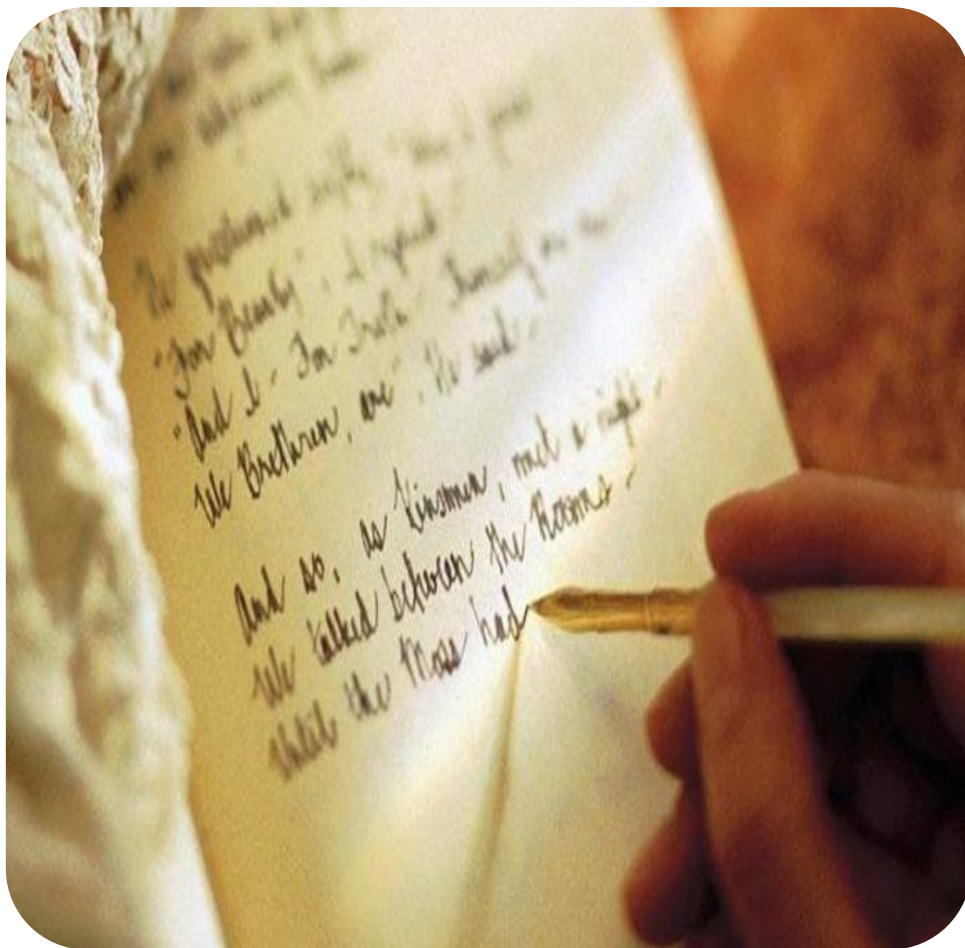 adjoining
He questioned softly, "Why I
"For Beauty", I replied -
"And I - For Truth -
We Brethren, are", He said -
And so, as Kinsmen, met a night -
We talked between the Rooms -
Until the Moss had